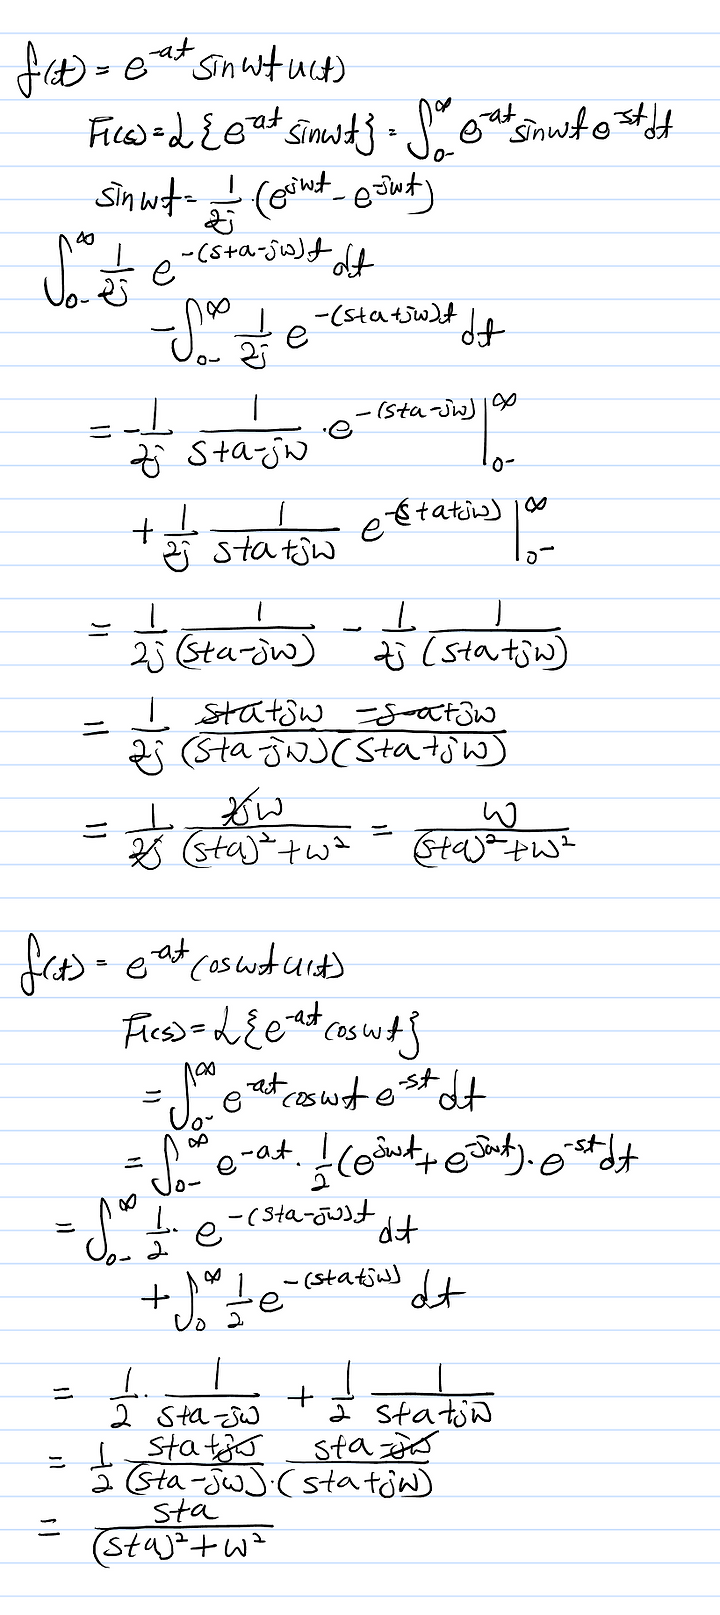 f(t) = e^{-at} sinωt u(t)
F(s) = L{e^{-at} sinωt} = ∫_{0-}^{∞} e^{-at} sinωt e^{-st} dt
sinωt = \frac{1}{2j} · (e^{jωt} - e^{-jωt})
∫_{0-}^{∞} \frac{1}{2j} e^{-(s+a-jω)t} dt
- ∫_{0-}^{∞} \frac{1}{2j} e^{-(s+a+jω)t} dt
= -\frac{1}{2j} \frac{1}{s+a-jω} · e^{-(s+a-jω)} |_{0-}^{∞}
+ \frac{1}{2j} \frac{1}{s+a+jω} e^{-(s+a+jω)} |_{0-}^{∞}
= \frac{1}{2j} \frac{1}{(s+a-jω)} - \frac{1}{2j} \frac{1}{(s+a+jω)}
= \frac{1}{2j} \frac{s+a+jω -s-a+jω}{(s+a-jω)(s+a+jω)}
= \frac{1}{2j} \frac{2jω}{(s+a)^2+ω^2} = \frac{ω}{(s+a)^2+ω^2}
f(t) = e^{-at} cosωt u(t)
F(s) = L{e^{-at} cosωt}
= ∫_{0-}^{∞} e^{-at} cosωt e^{-st} dt
= ∫_{0-}^{∞} e^{-at} · \frac{1}{2} (e^{jωt} + e^{-jωt}) · e^{-st} dt
= ∫_{0-}^{∞} \frac{1}{2} · e^{-(s+a-jω)t} dt
+ ∫_{0}^{∞} \frac{1}{2} e^{-(s+a+jω)} dt
= \frac{1}{2} · \frac{1}{s+a-jω} + \frac{1}{2} \frac{1}{s+a+jω}
= \frac{1}{2} \frac{s+a+jω  s+a-jω}{(s+a-jω)·(s+a+jω)}
= \frac{s+a}{(s+a)^2+ω^2}